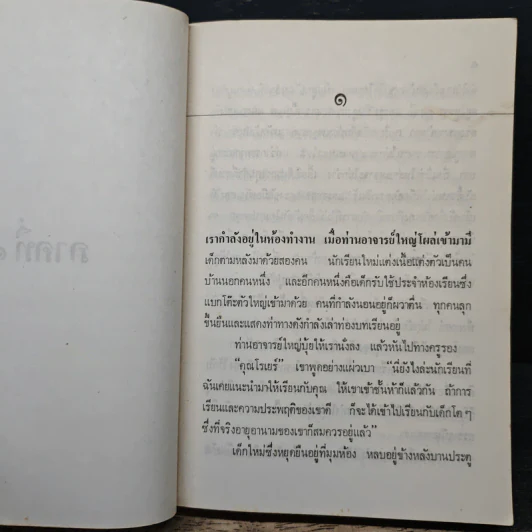 ๑
เรากำลังอยู่ในห้องทำงาน เมื่อท่านอาจารย์ใหญ่โผล่เข้ามามี
เด็กตามหลังมาด้วยสองคน นักเรียนใหม่แต่งเนื้อแต่งตัวเป็นคน
บ้านนอกคนหนึ่ง และอีกคนหนึ่งคือเด็กรับใช้ประจำห้องเรียนซึ่ง
แบกโต๊ะตัวใหญ่เข้ามาด้วย คนที่กำลังนอนอยู่ก็ผวาตื่น ทุกคนลุก
ขึ้นยืนและแสดงท่าทางดังกำลังเล่าท่องบทเรียนอยู่
ท่านอาจารย์ใหญ่บุ้ยให้เรานั่งลง แล้วหันไปทางครูรอง
“คุณโรเยร์” เขาพูดอย่างแผ่วเบา “นี่ยังไงล่ะนักเรียนที่
ฉันเคยแนะนำมาให้เรียนกับคุณ ให้เขาเข้าชั้นห้าก็แล้วกัน ถ้าการ
เรียนและความประพฤติของเขาดี ก็จะได้เข้าไปเรียนกับเด็กโต ๆ
ซึ่งที่จริงอายุอานามของเขาก็สมควรอยู่แล้ว”
เด็กใหม่ซึ่งหยุดยืนอยู่ที่มุมห้อง หลบอยู่ข้างหลังบานประตู